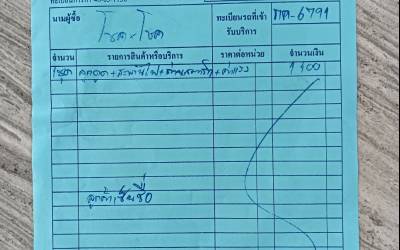 นามผู้ซื้อ โชคะโชค
ทะเบียนรถที่เข้า
รับบริการ
กค-6791
จำนวน รายการสินค้าหรือบริการ ราคาต่อหน่วย จำนวนเงิน
1ชุด ลูกดูด+สะพานไฟ+ +ค่าแรง 1400
ลูกค้าเซ็นชื่อ